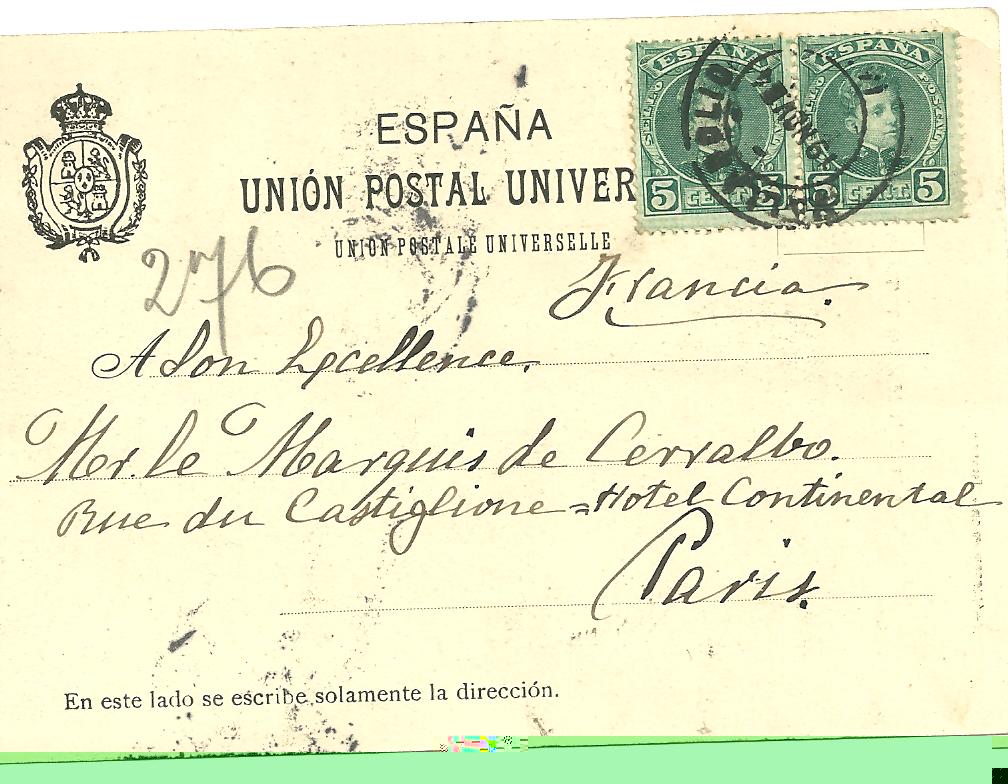 ESPAÑA
UNIÓN POSTAL UNIVER
UNION POSTALE UNIVERSELLE
ESPAÑA
5 CENT 5
ESPAÑA
5 CENT 5
276
Francia.
A Son Excellence.
Mr. le Marquis de Cerralbo.
Rue du Castiglione = Hotel Continental
Paris.
En este lado se escribe solamente la dirección.